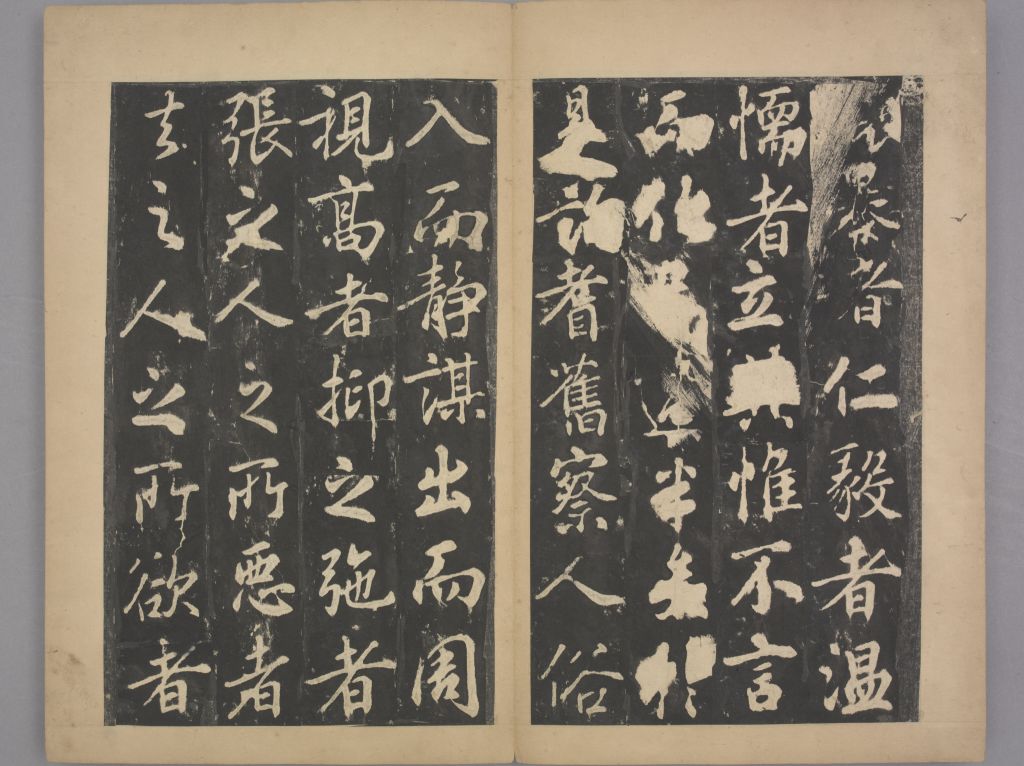 暴者仁毅者溫
懦者立其惟不言
而化半矣於
是訪耆舊察人俗
入而静謀出而周
視髙者抑之弛者
張之人之所惡者
去之人之所欲者